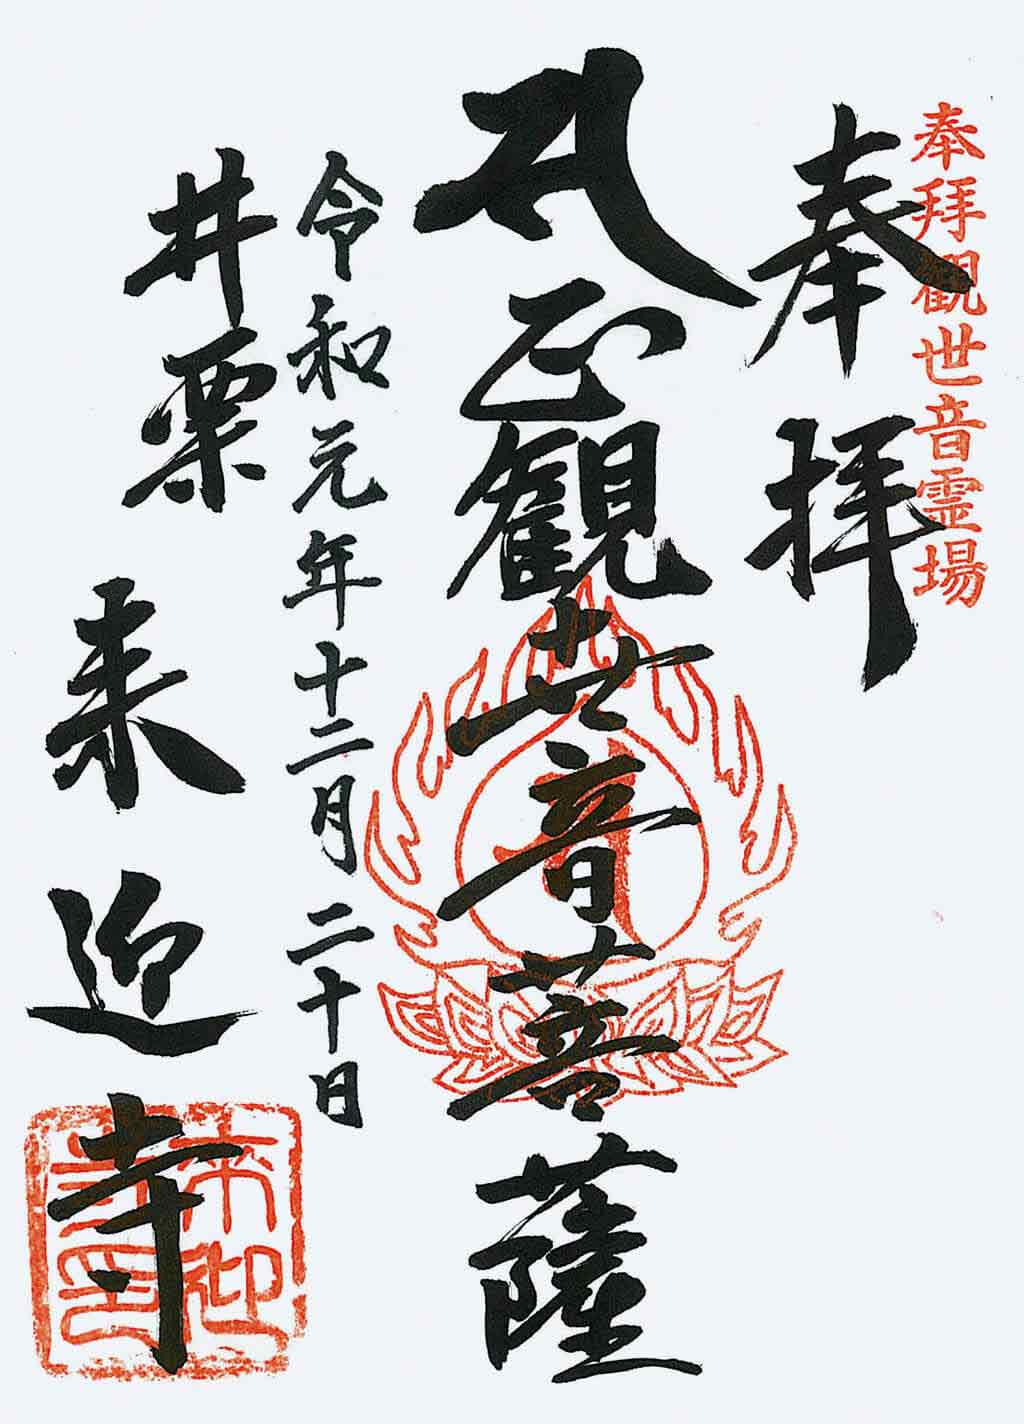 奉拜觀世音霊場
奉拝
正観世音菩薩
令和元年十二月二十日
井栗 来迎寺
来迎
寺印